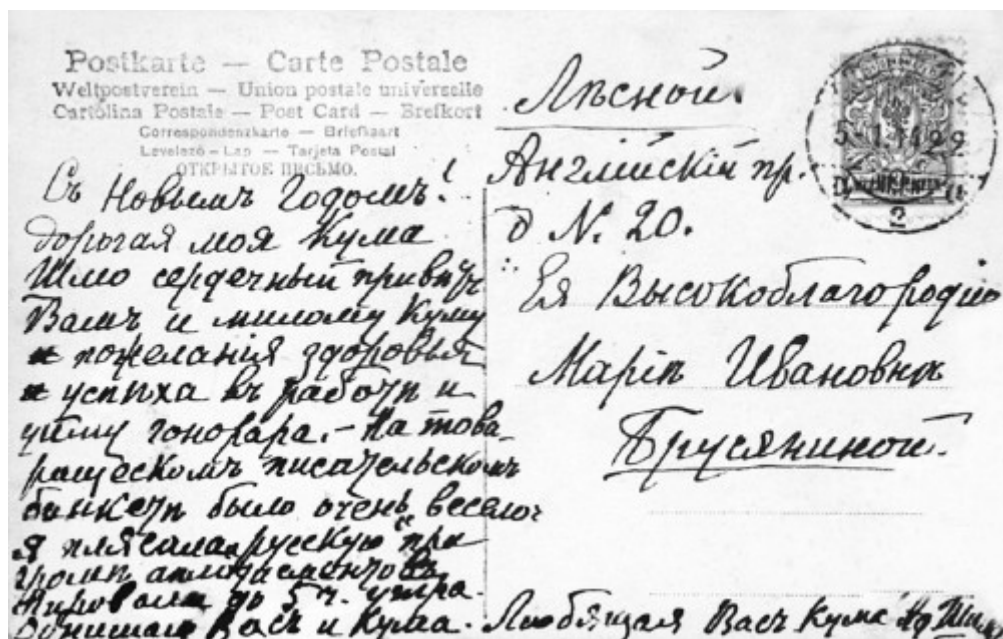 Postkarte — Carte Postale
Weltpostverein — Union postale universelle
Cartolina Postale — Post Card — Brefkort
Correspondenzkarte — Briefkaart
Levelező-Lap — Tarjeta Postal
ОТКРЫТОЕ ПИСЬМО.
Съ Новымъ Годомъ!
дорогая моя Кума
Шлю сердечный привѣтъ
Вамъ и милому Куму
и пожелания здоровья
и успѣха въ работѣ и
уйму гонорара. – На това-
рищескомъ писательскомъ
банкетѣ было очень весело
я плясала „русскую" при
громѣ аплодисментовъ
Пировали до 5 ч. утра.
Васъ и Кума. Любящая Васъ Кума
Лѣсной.
Англійскій пр.
д N. 20.
Ея Высокоблагородію
Маріи Ивановнѣ
Брусяниной.
2